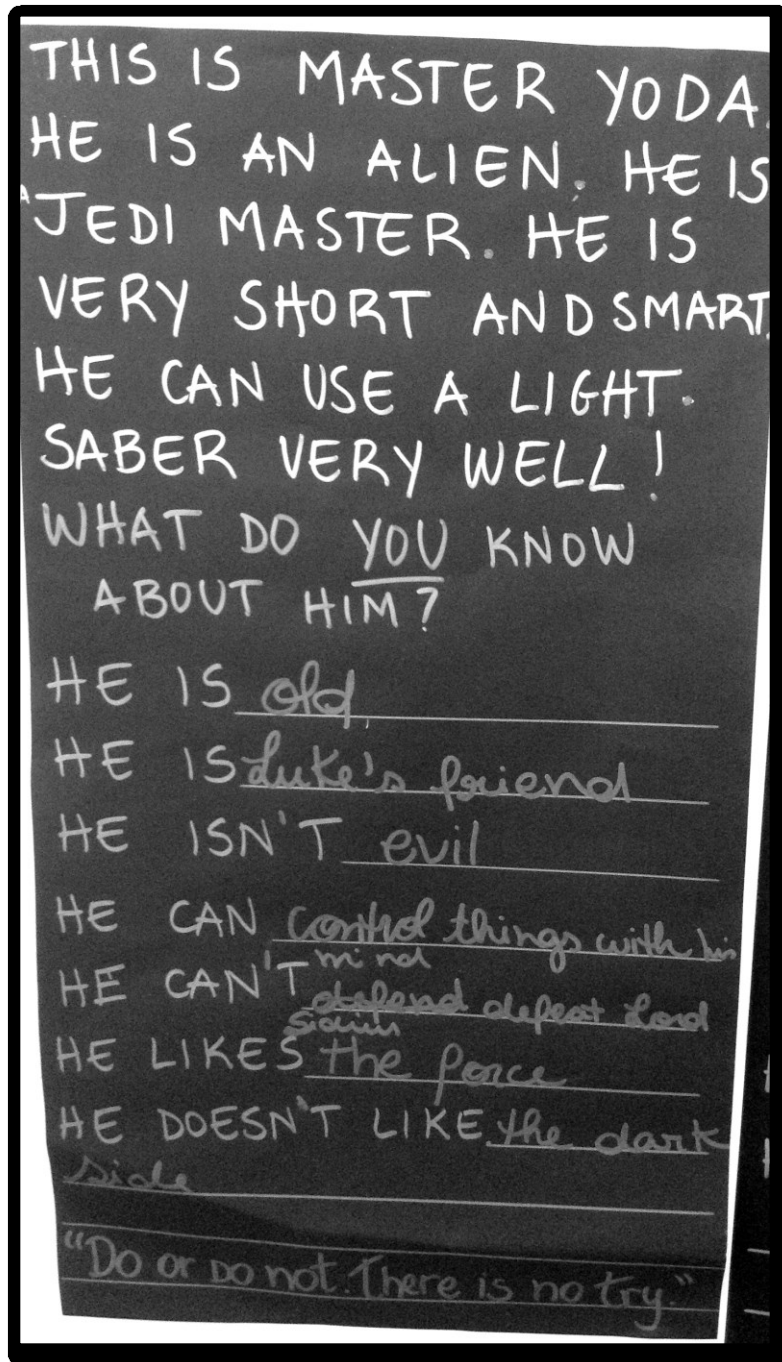 THIS IS MASTER YODA.
HE IS AN ALIEN. HE IS
A JEDI MASTER. HE IS
VERY SHORT AND SMART.
HE CAN USE A LIGHT-
SABER VERY WELL!
WHAT DO YOU KNOW
ABOUT HIM?
HE IS old
HE IS Luke's friend
HE ISN'T evil
HE CAN control things with his
mind
HE CAN'T defend defeat Lord
Sidius
HE LIKES the force
HE DOESN'T LIKE the dark
side
"Do or Do not. There is no try."